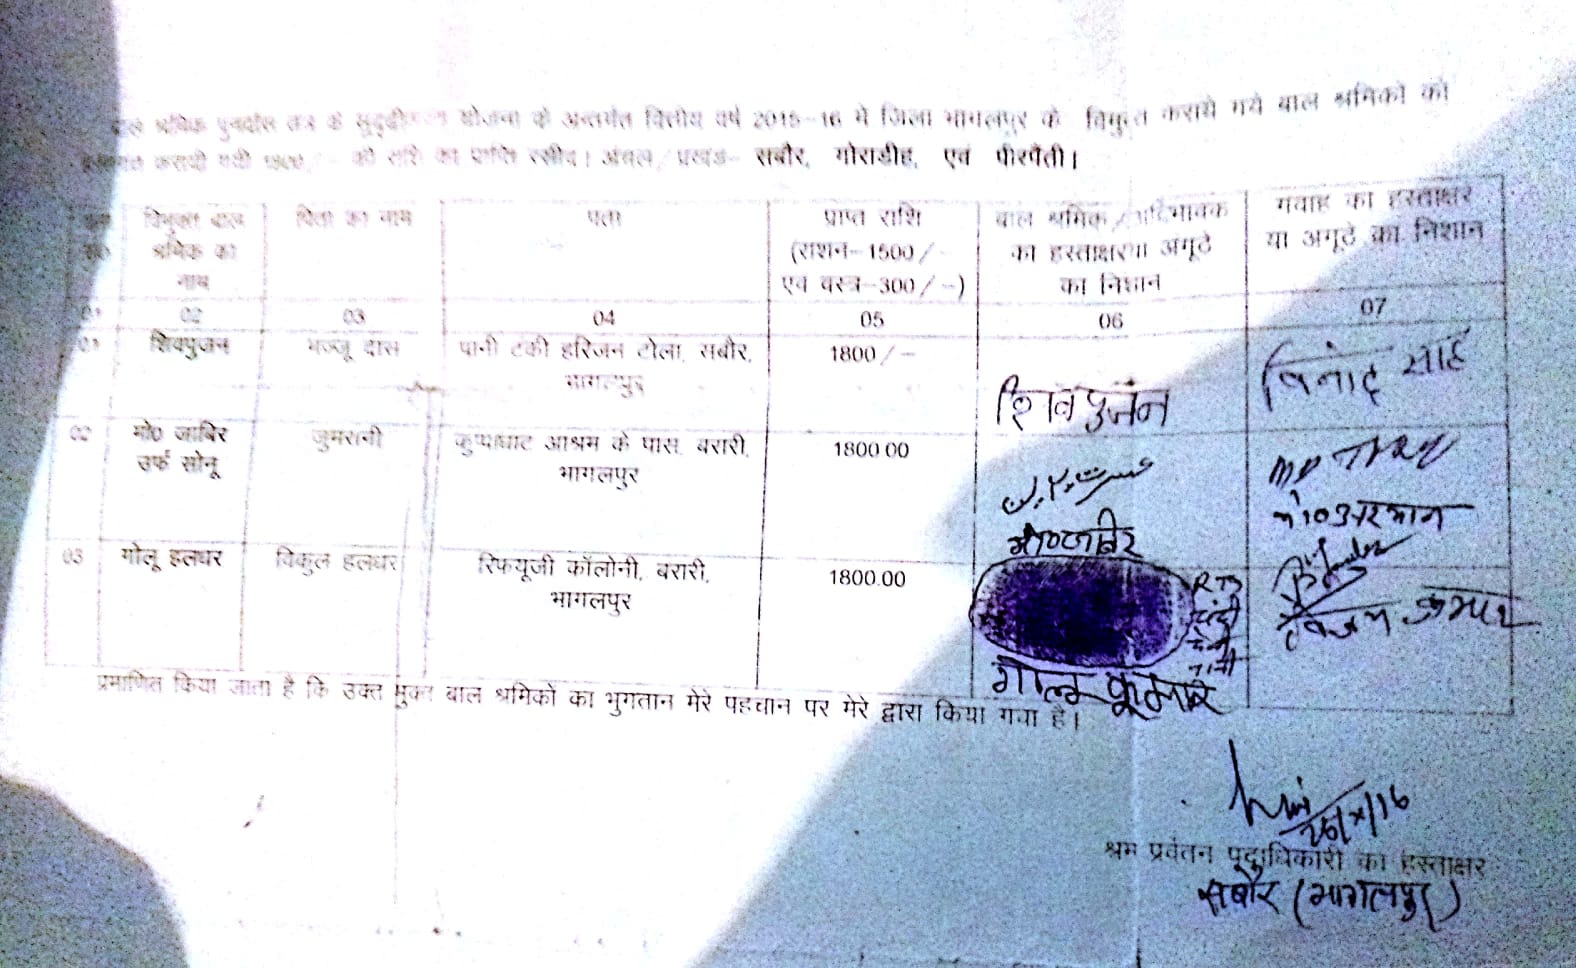 बाल श्रमिक पुनर्वास तंत्र के सुदृढ़ीकरण योजना के अन्तर्गत वित्तीय वर्ष 2015-16 में जिला भागलपुर के विमुक्त कराये गये बाल श्रमिकों को
करायी गयी 1800/- की राशि का प्राप्ति रसीद। अंचल/प्रखंड- सबौर, गोराडीह, एवं पीरपैंती।
विमुक्त बाल श्रमिक का नाम
पिता का नाम
पता
प्राप्त राशि (राशन-1500/- एवं वस्त्र-300/-)
बाल श्रमिक/अभिभावक का हस्ताक्षरया अंगूठे का निशान
गवाह का हस्ताक्षर या अंगूठे का निशान
01 02 03 04 05 06 07
01 शिवपुजन भज्जू दास पानी टंकी हरिजन टोला, सबौर, भागलपुर 1800/- शिवपुजन विनोद साह
02 मो० जाबिर उर्फ सोनू जुमरानी कुप्पाघाट आश्रम के पास, बरारी, भागलपुर 1800.00
मो० जाबिर मो० अरमान
03 गोलू हलधर विकुल हलधर रिफयूजी कॉलोनी, बरारी, भागलपुर 1800.00
गोलू कुमार
विजय कुमार
प्रमाणित किया जाता है कि उक्त मुक्त बाल श्रमिकों का भुगतान मेरे पहचान पर मेरे द्वारा किया गया है।
26/X/16
श्रम प्रवंतन पदाधिकारी का हस्ताक्षर
सबौर (भागलपुर)